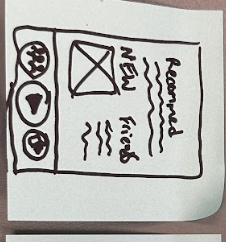 Recommed
NEW Friends